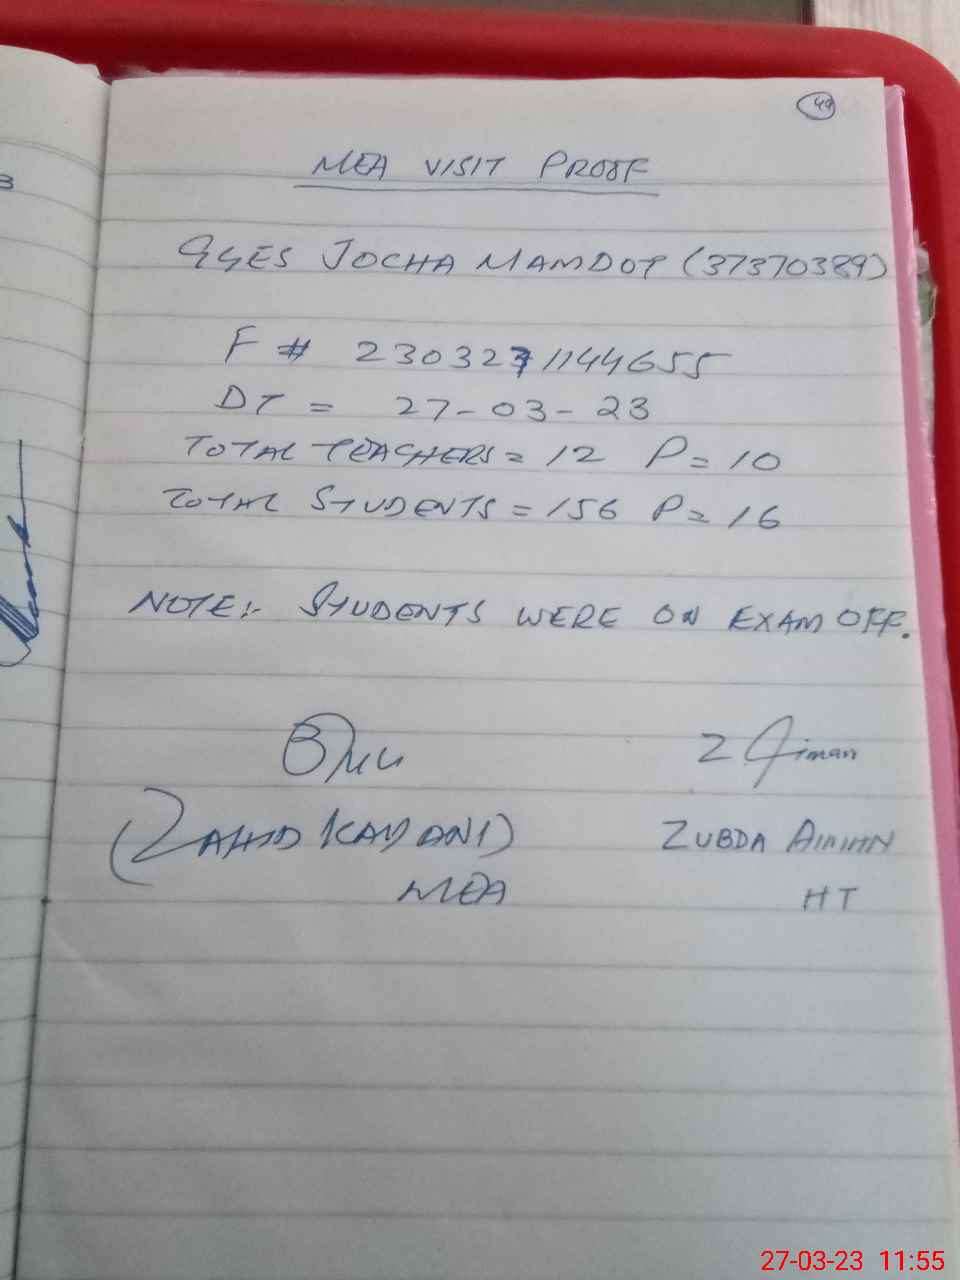 49
MEA VISIT PROOF
GGES JOCHA MAMDOT (37370389)
F # 2303271144655
DT = 27-03-23
TOTAL TEACHERS = 12 P = 10
TOTAL STUDENTS = 156 P = 16
NOTE:- STUDENTS WERE ON EXAM OFF.
Z Aiman
(ZAHID KAYANI) ZUBDA AIMAN
MEA HT
27-03-23 11:55